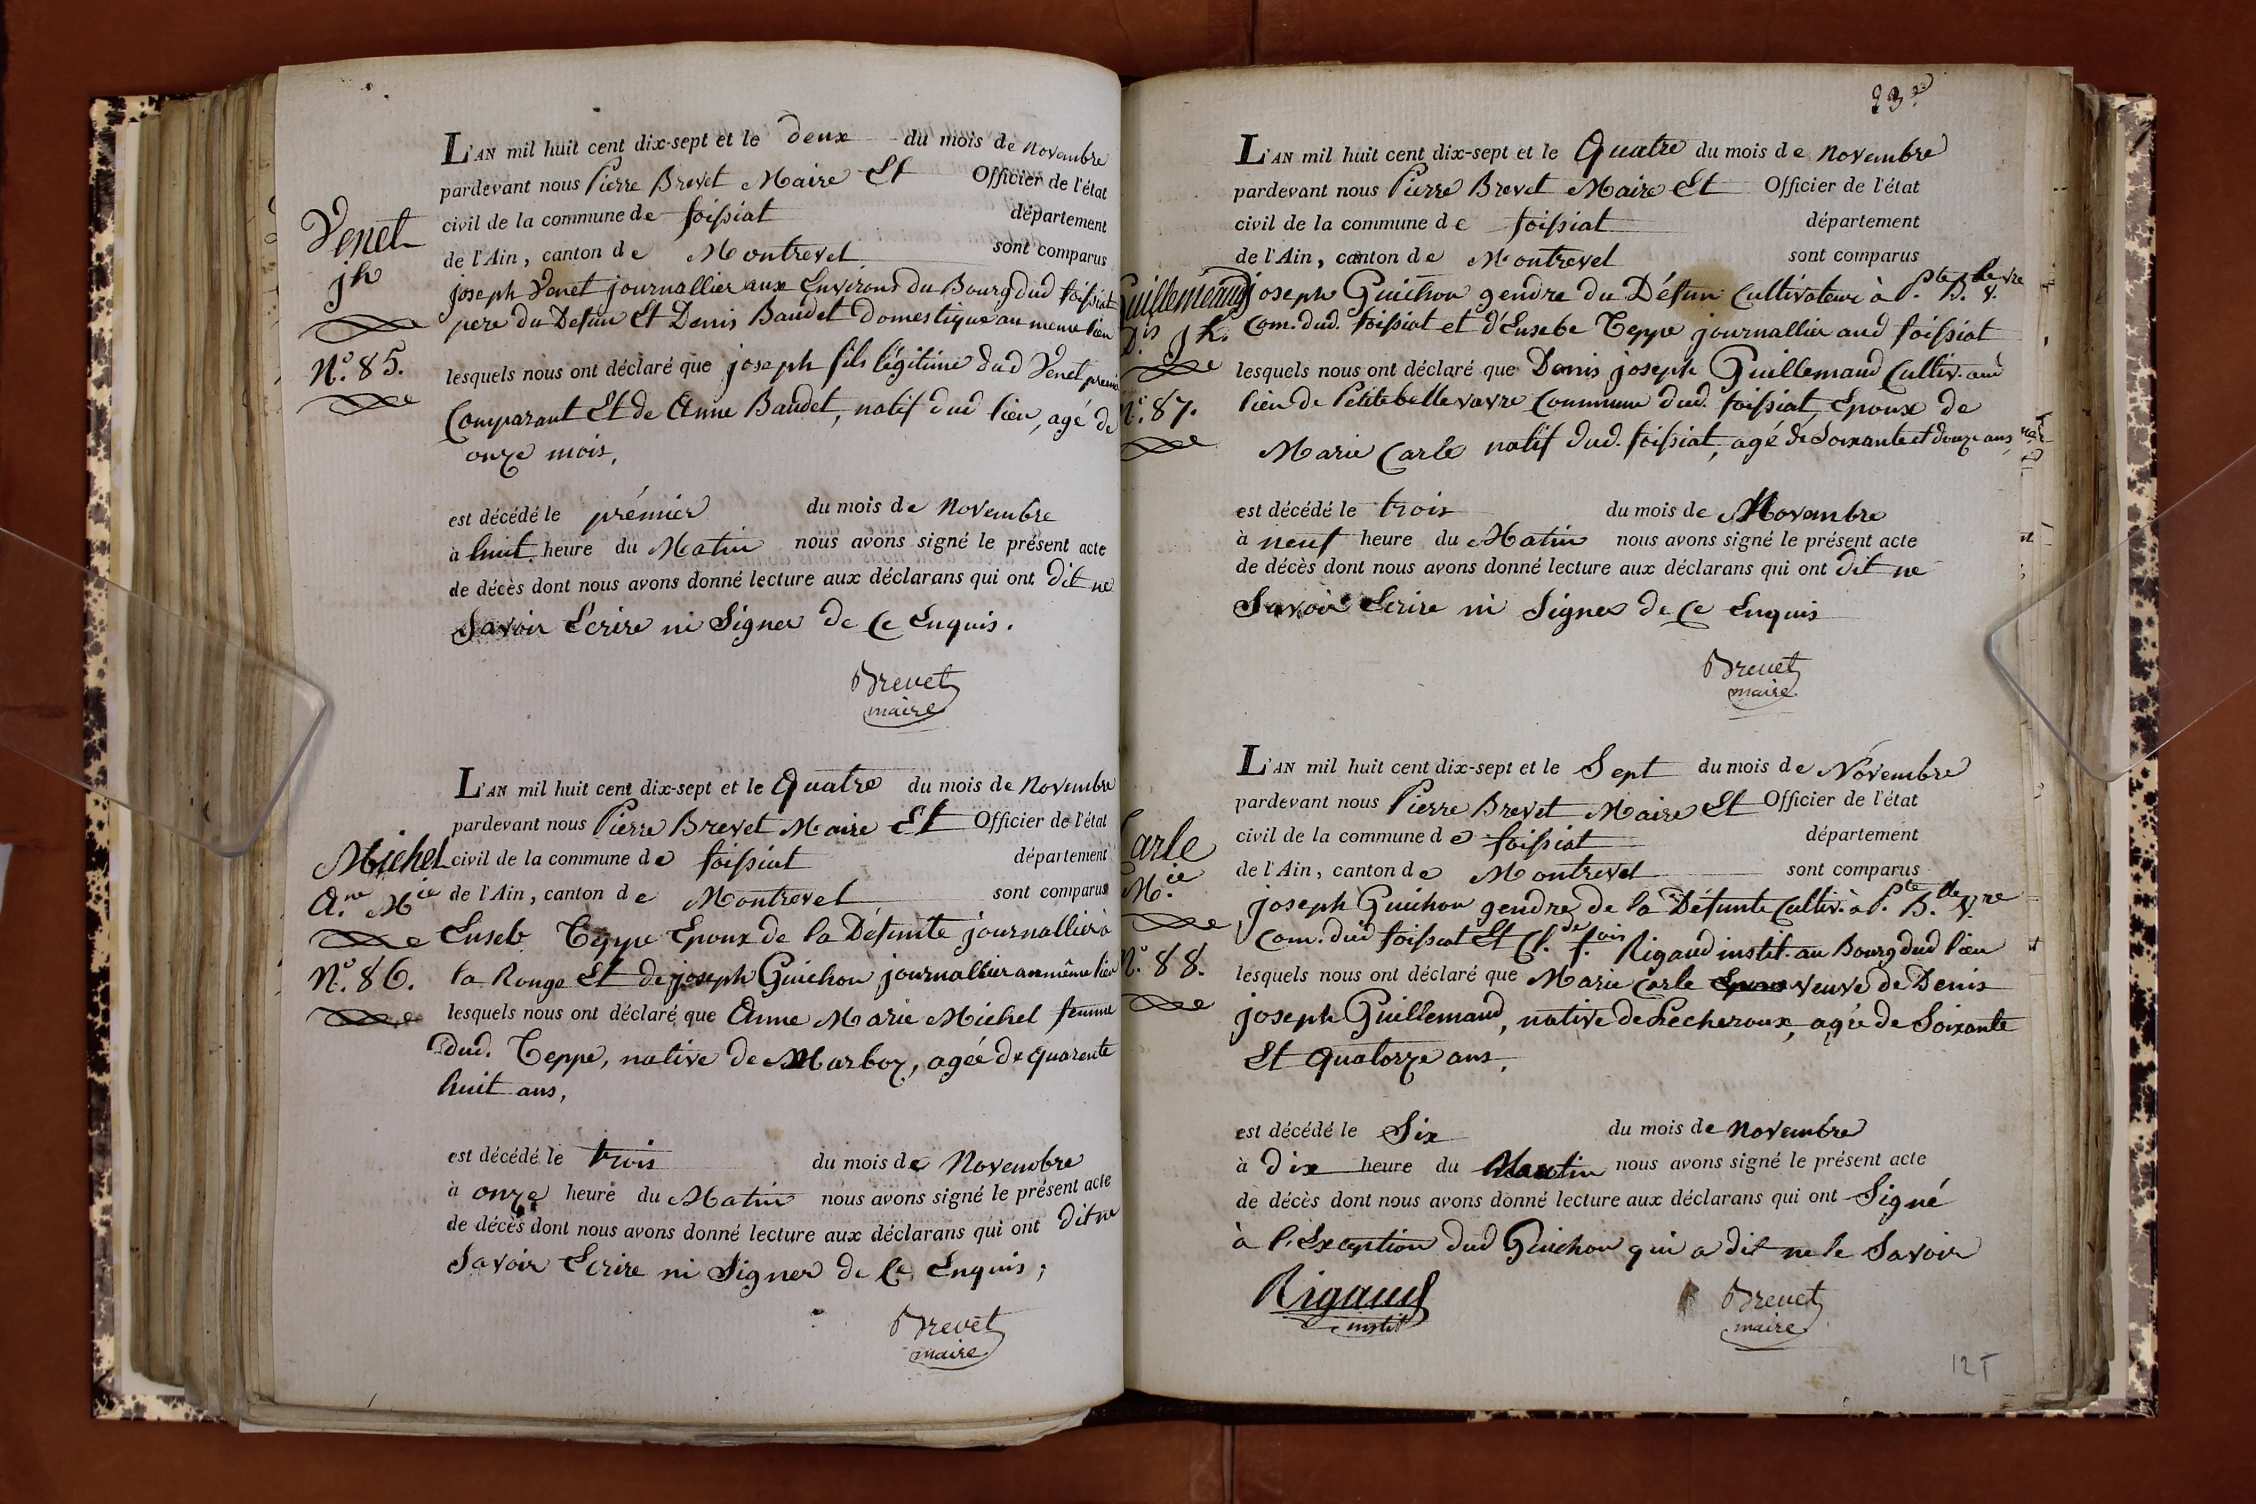 L'AN mil huit cent dix-sept et le deux du mois de novembre
pardevant nous Pierre Brevet Maire Et Officier de l'état
civil de la commune de foissiat département
de l'Ain, canton de Montrevel sont comparus
Venet
jh
N.º 85.
joseph Venet journallier aux Environs du Bourg dud foissiat
pere du Defun Et Denis Baudet Domestique au meme lieu
lesquels nous ont déclaré que joseph fils légitime dud Venet premier
Comparant Et de Anne Baudet, natif dud lieu, agé de
onze mois,
est décédé le prémier du mois de Novembre
à huit heure du Matin nous avons signé le présent acte
de décès dont nous avons donné lecture aux déclarans qui ont dit ne
Savoir Ecrire ni Signer de Ce Enquis.
Brevet
maire
L'AN mil huit cent dix-sept et le Quatre du mois de Novembre
pardevant nous Pierre Brevet Maire Et Officier de l'état
civil de la commune de foissiat département
de l'Ain, canton de Montrevel sont comparus
Michel
A.ne Mie
N.º 86.
Euseb Teppe Epoux de la Défunte journallier à
la Ronge Et de joseph Guichon journallier au même lieu
lesquels nous ont déclaré que Anne Marie Michel femme
Dud. Teppe, native de Marboz, agée de quarente
huit ans,
est décédé le trois du mois de Novembre
à onze heure du Matin nous avons signé le présent acte
de décès dont nous avons donné lecture aux déclarans qui ont dit ne
Savoir Ecrire ni Signer de Ce Enquis;
Brevet
maire
L'AN mil huit cent dix-sept et le Quatre du mois de Novembre
pardevant nous Pierre Brevet Maire Et Officier de l'état
civil de la commune de foissiat département
de l'Ain, canton de Montrevel sont comparus
Guillemaud
D.is jh.
N.º 87.
joseph Guichon gendre du Défun Cultivateur à P.te B.lle V.vre
Com. dud. foissiat et d'Eusebe Teppe journallier aud foissiat
lesquels nous ont déclaré que Denis joseph Guillemaud Cultiv. aud
lieu de Petitebellevavre Commune dud. foissiat, Epoux de
Marie Carle natif dud. foissiat, agé de Soixante et douze ans,
est décédé le trois du mois de Novembre
à neuf heure du Matin nous avons signé le présent acte
de décès dont nous avons donné lecture aux déclarans qui ont dit ne
Savoir Ecrire ni Signer de Ce Enquis
Brevet
maire
L'AN mil huit cent dix-sept et le Sept du mois de Novembre
pardevant nous Pierre Brevet Maire Et Officier de l'état
civil de la commune de foissiat département
de l'Ain, canton de Montrevel sont comparus
Carle
M.ie
N.º 88.
joseph Guichon gendre de la Défunte Cultiv. à P.te B.lle V.re
Com. dud foissiat Et Cl.de f.ois Rigaud instit. au Bourg dud lieu
lesquels nous ont déclaré que Marie Carle veuve de Denis
joseph Guillemaud, native de Lecheroux, agée de Soixante
Et quatorze ans,
est décédé le Six du mois de Novembre
à dix heure du Matin nous avons signé le présent acte
de décès dont nous avons donné lecture aux déclarans qui ont Signé
à l'Exception dud Guichon qui a dit ne le Savoir
Rigaud
instit
Brevet
maire